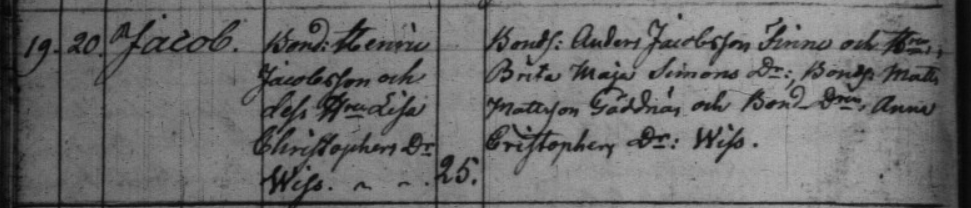 19. 20. Jacob. Bond: Henric Bonds: Anders Jacobsson Finne och Hru,
Jacobsson och Brita Maja Simons Dr:, Bonds: Matts
dess Hru Lisa Mattsson Gäddnäs och Bond Dren, Anna
Christophers Dr Cristophers Dr: Wiss.
Wiss. 25.